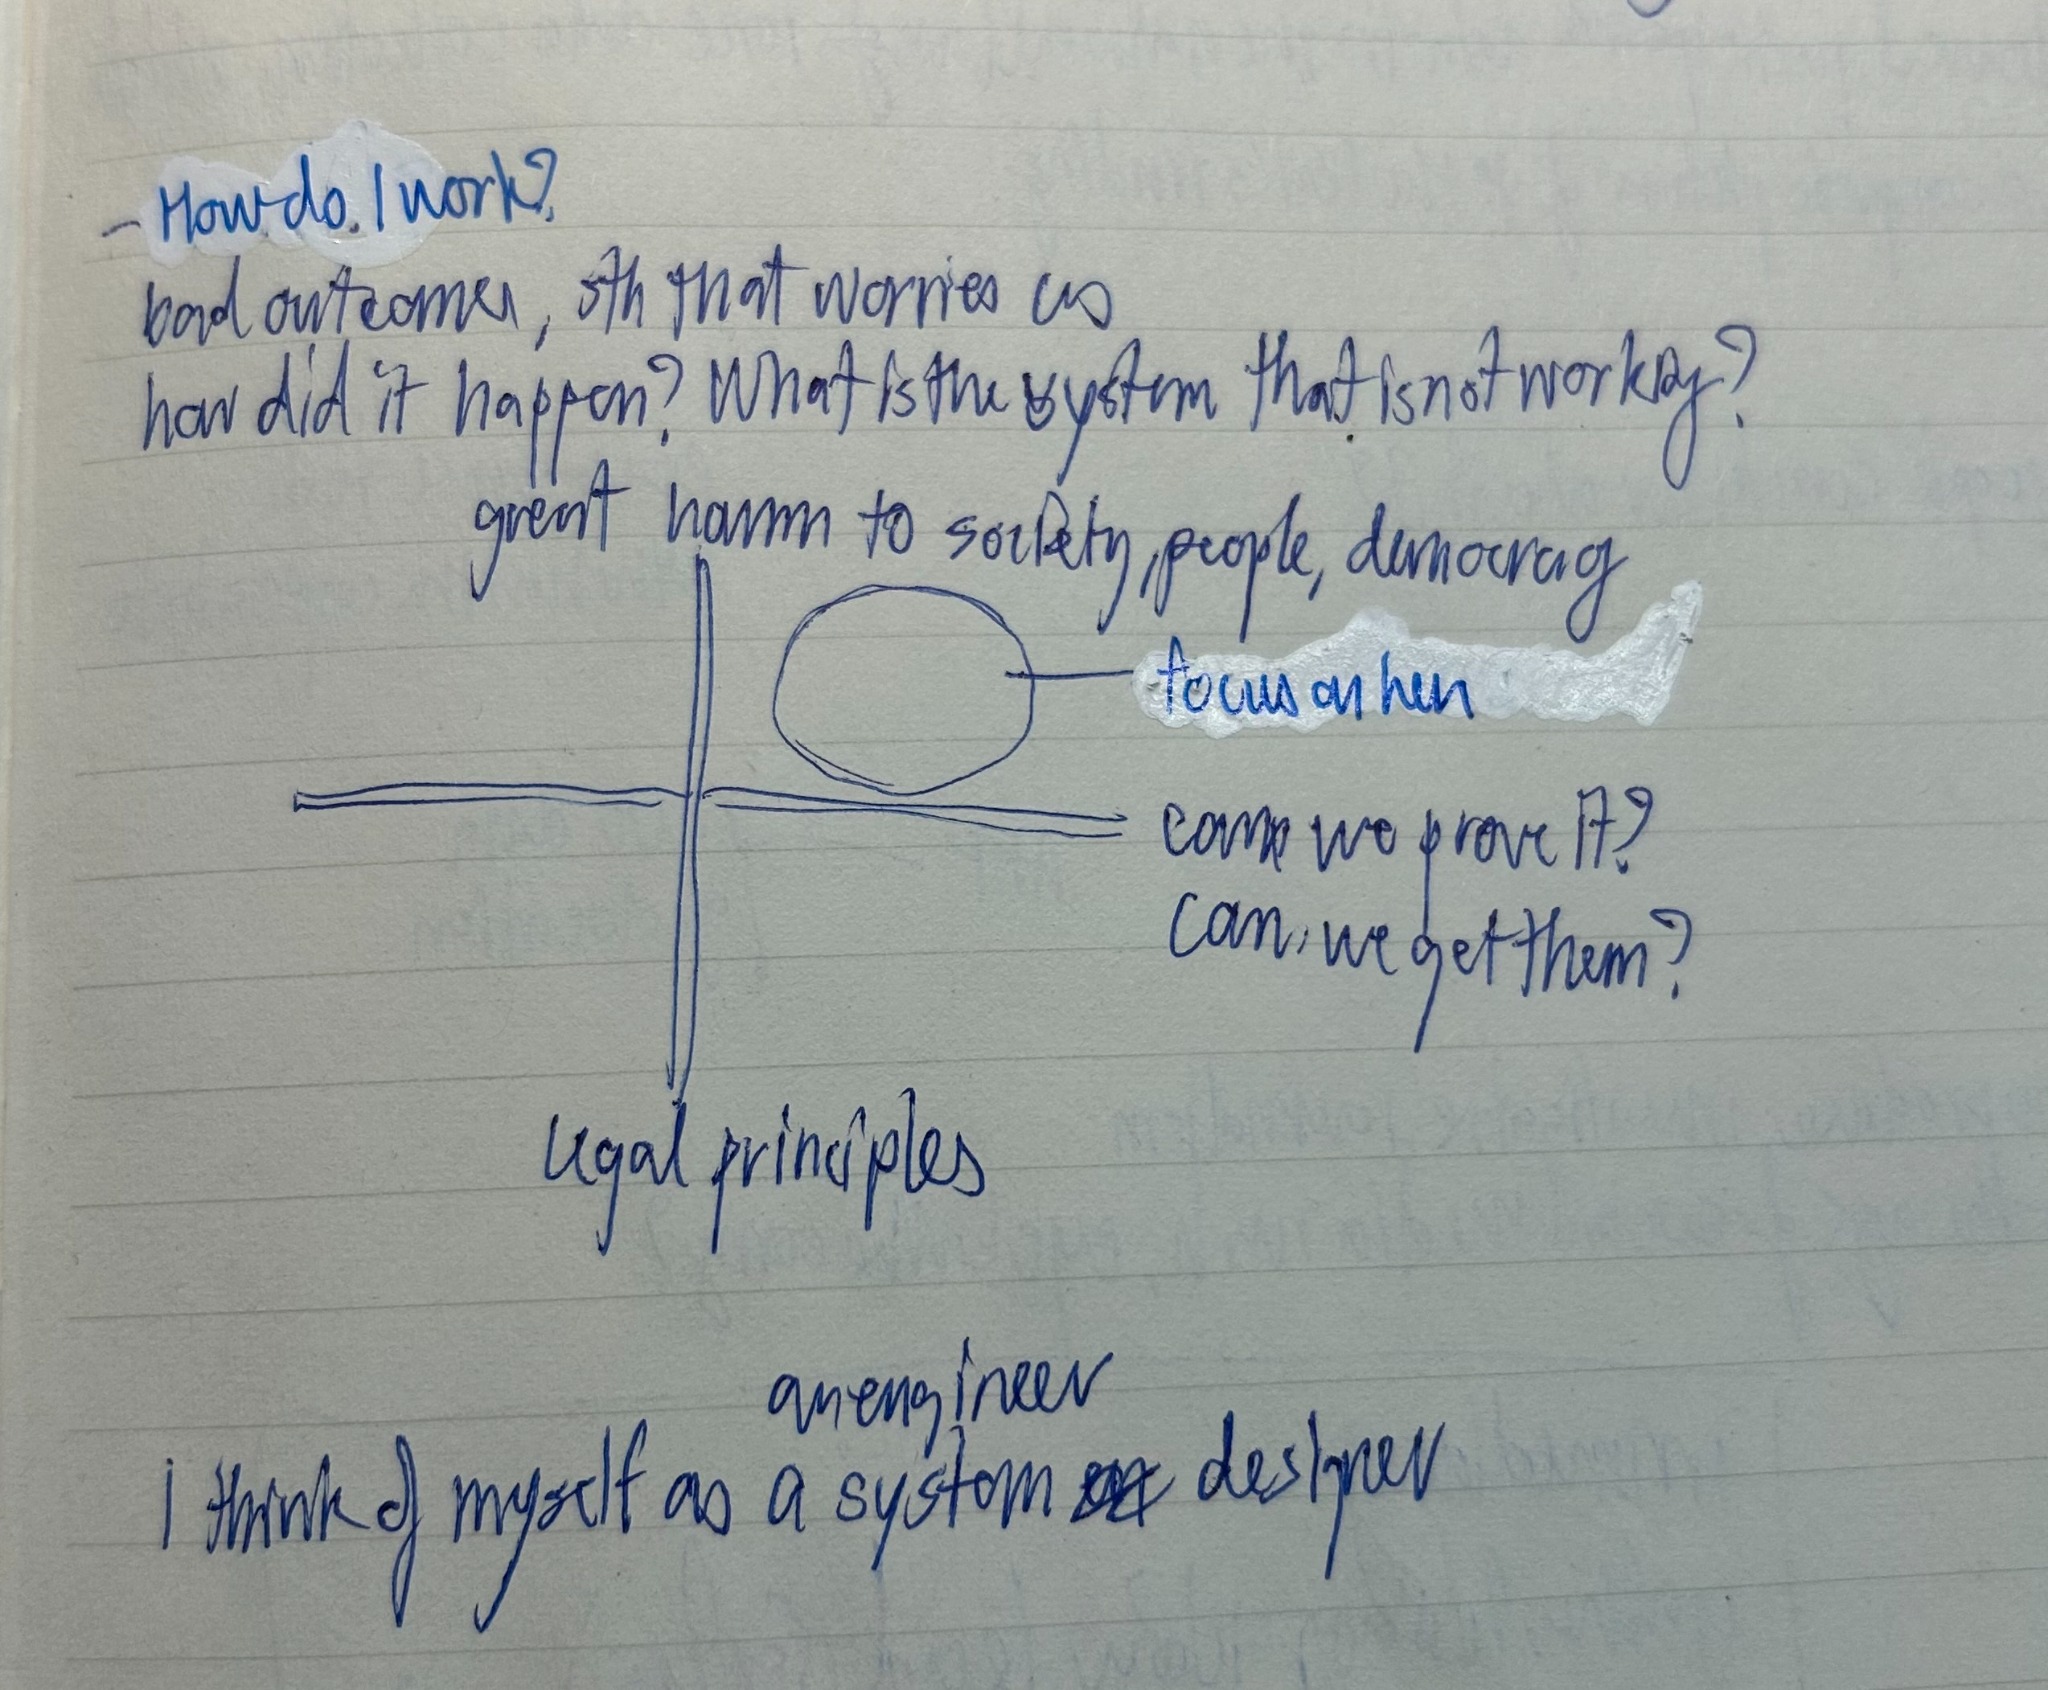 - How do I work?
bad outcomes, sth that worries us
how did it happen? What is the system that is not working?
great harm to society, people, democracy
focus on here
can we prove it?
can we get them?
legal principles
an engineer
I think of myself as a system designer